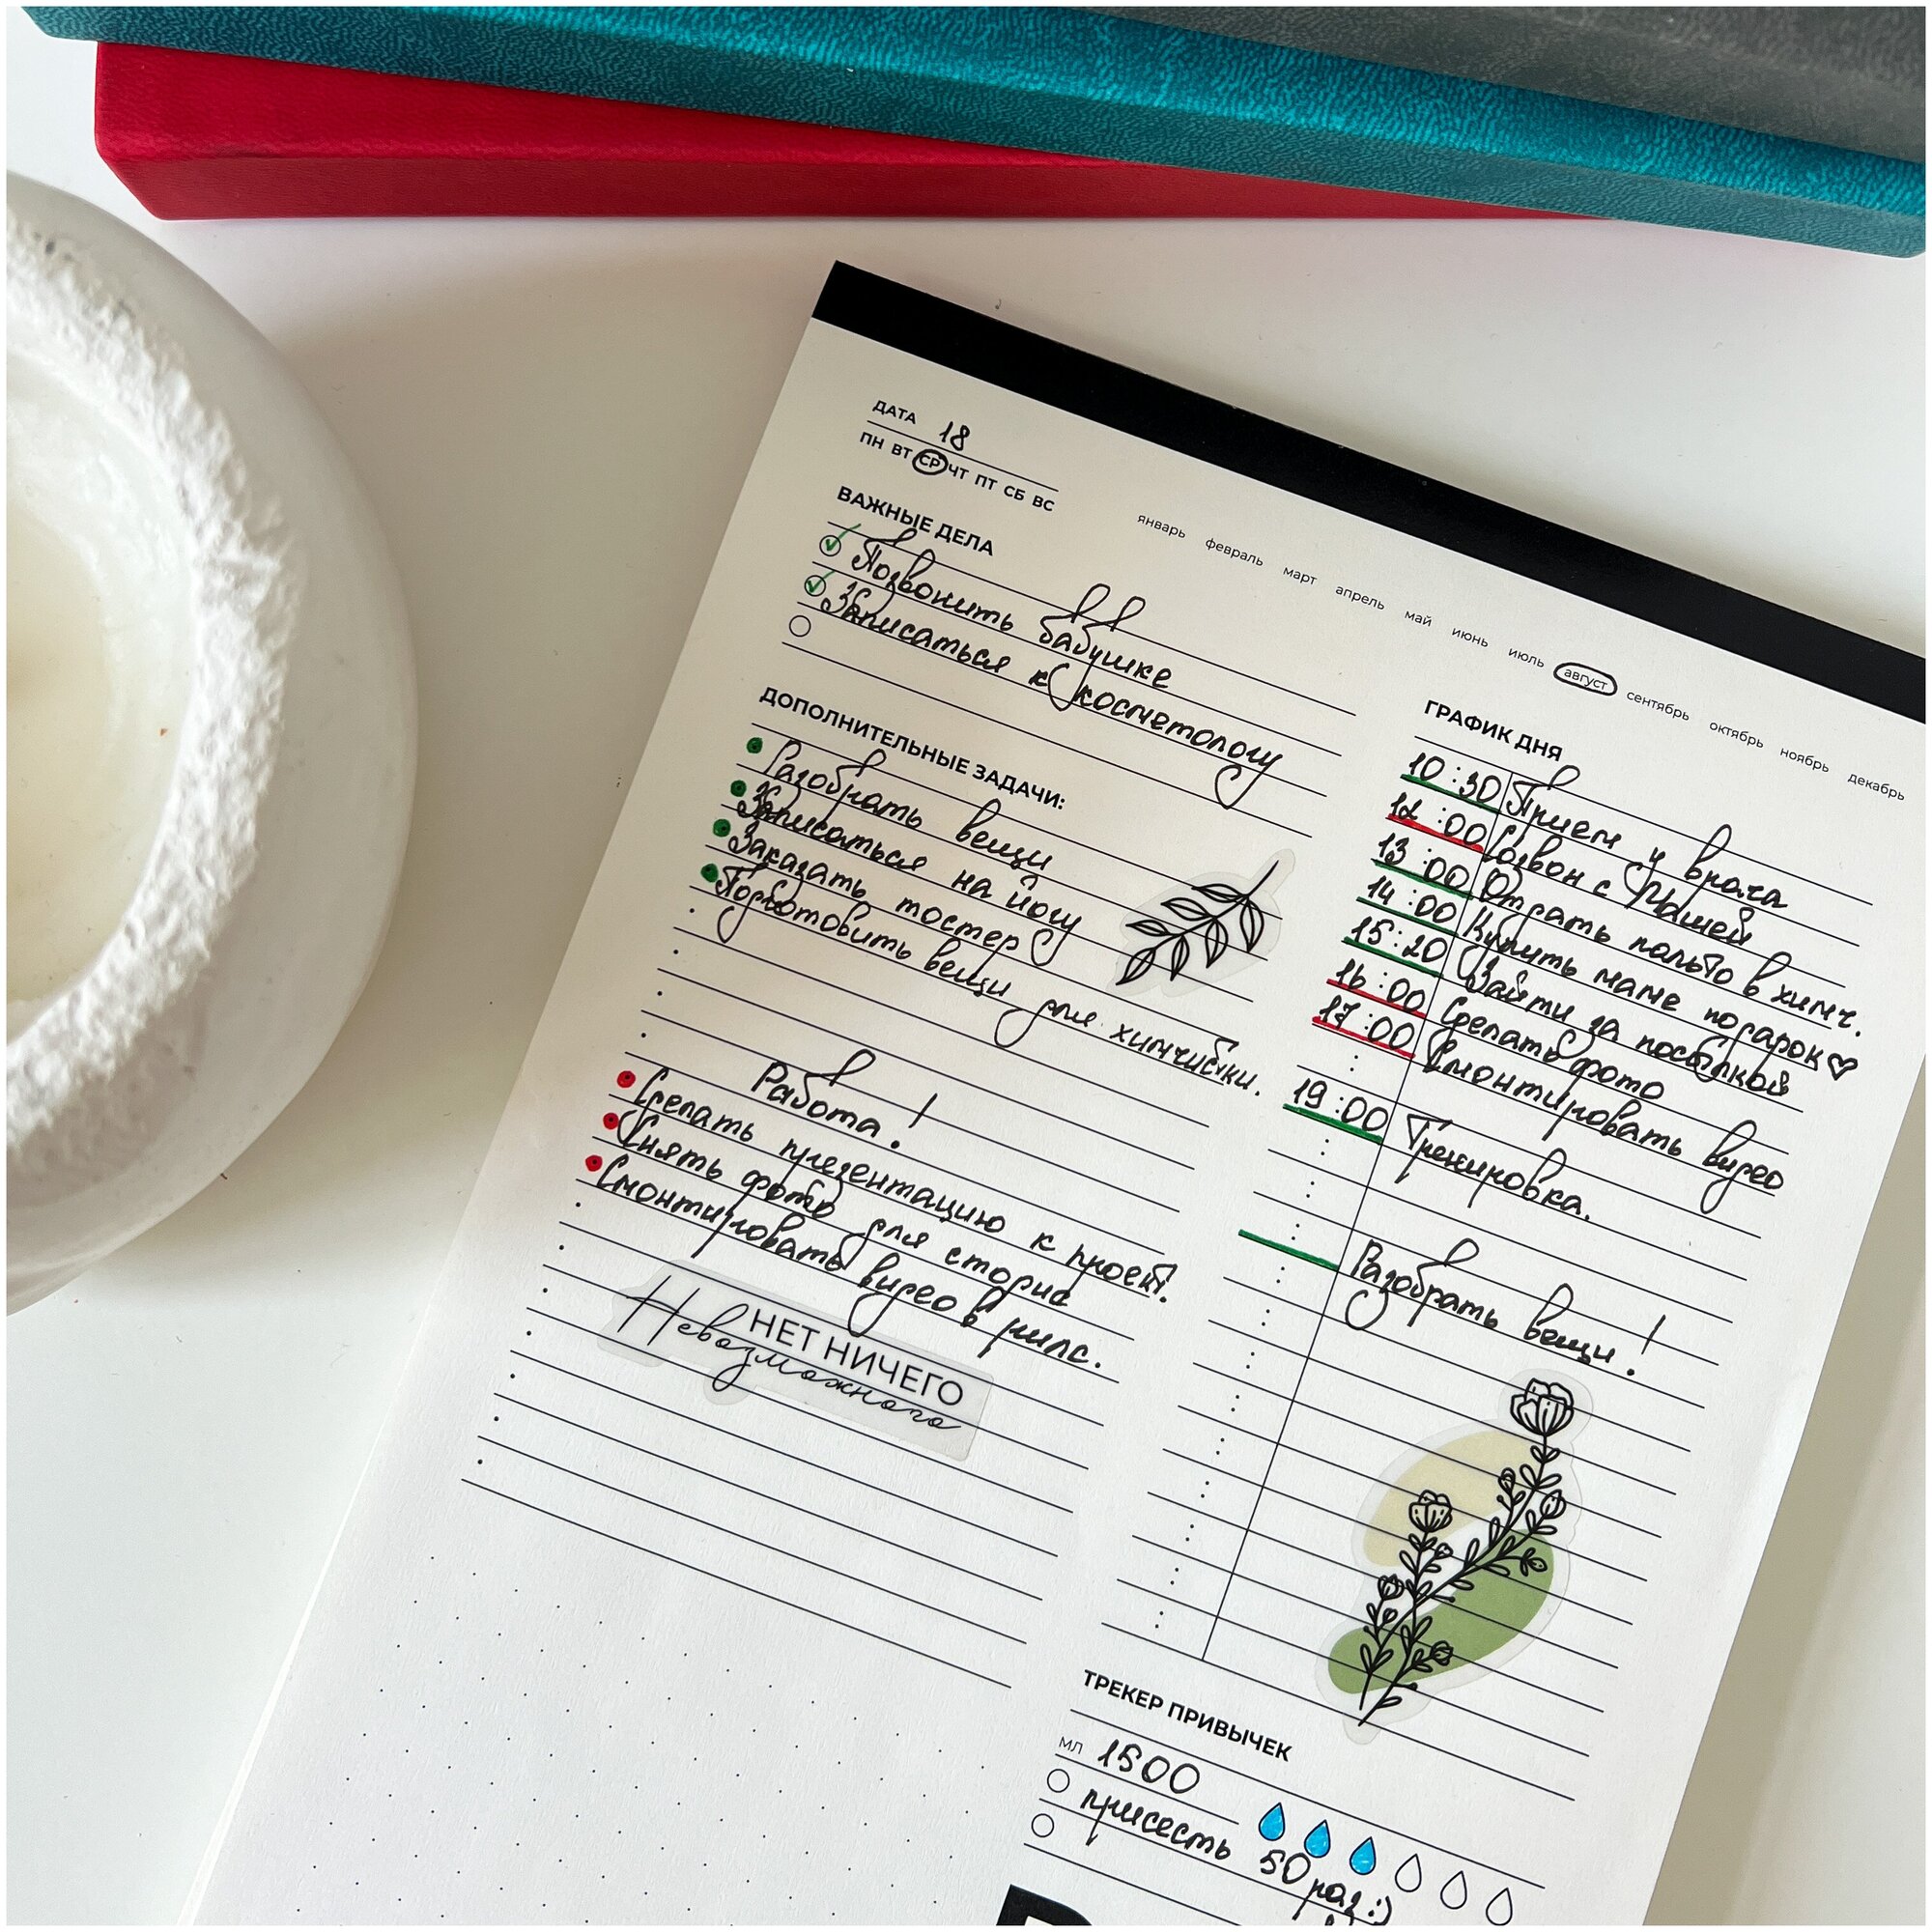 ДАТА 18
ПН ВТ СР ЧТ ПТ СБ ВС
январь февраль март апрель май июнь июль август сентябрь октябрь ноябрь декабрь
ВАЖНЫЕ ДЕЛА
Позвонить бабушке
Записаться к косметологу
ДОПОЛНИТЕЛЬНЫЕ ЗАДАЧИ:
Разобрать вещи
Записаться на йогу
Заказать тостер
Подготовить вещи для химчистки.
Работа!
Сделать презентацию к проект.
Снять фото для сторис
Смонтировать видео в рилс.
НЕТ НИЧЕГО
Невозможного
ГРАФИК ДНЯ
10:30 Прием у врача
12:00 Созвон с Машей
13:00 Отдать пальто в химч.
14:00 Купить маме подарок ♡
15:20 Зайти за посылкой
16:00 Сделать фото
17:00 Смонтировать видео
19:00 Тренировка.
Разобрать вещи!
ТРЕКЕР ПРИВЫЧЕК
МЛ 1500
присесть 50 раз :)